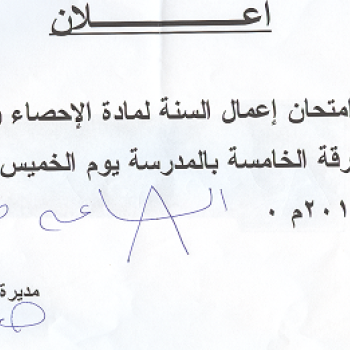 اعـــــلان
امتحان إعمال السنة لمادة الإحصاء و
رقة الخامسة بالمدرسة يوم الخميس
٢٠١م ٠ الساعه
مديرة